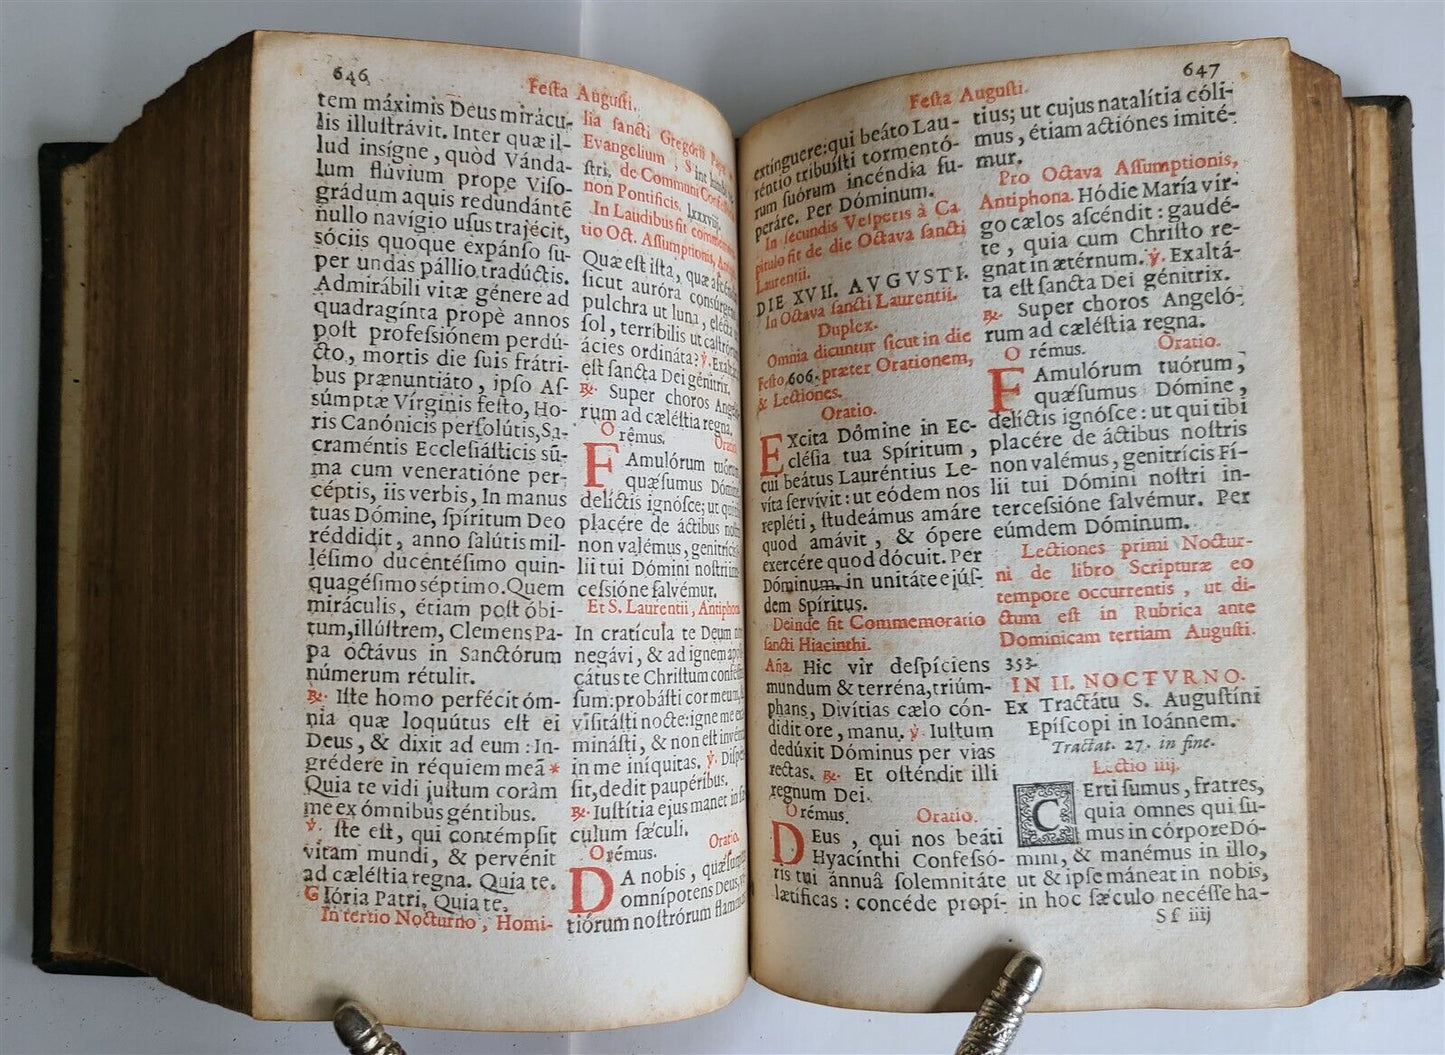 646
Festa Augusti.
tem máximis Deus mirácu-
lis illustrávit. Inter quæ il-
lud insígne, quòd Vánda-
lum flúvium prope Viso-
grádum aquis redundántē
nullo navígio usus trajécit,
sóciis quoque expánso su-
per undas pállio tradúctis.
Admirábili vitæ génere ad
quadragínta propè annos
post professiónem perdú-
cto, mortis die suis frátri-
bus prænuntiáto, ipso As-
súmptæ Vírginis festo, Ho-
ris Canónicis persolútis, Sa-
craméntis Ecclesiásticis sū-
ma cum veneratióne per-
céptis, iis verbis, In manus
tuas Dómine, spíritum Deo
réddidit, anno salútis mil-
lésimo ducentésimo quin-
quagésimo séptimo. Quem
miráculis, étiam post óbi-
tum, illústrem, Clemens Pa-
pa octávus in Sanctórum
númerum rétulit.
℟. Iste homo perfécit óm-
nia quæ loquútus est ei
Deus, & dixit ad eum: In-
grédere in réquiem meā *
Quia te vidi justum coràm
me ex ómnibus géntibus.
℣. Iste est, qui contémpsit
vitam mundi, & pervénit
ad cæléstia regna. Quia te.
Glória Patri, Quia te.
In tertio Nocturno, Homi-
lia sancti Gregorii Papæ
Evangelium, Sint lumbi
stri, de Communi Confess
non Pontificis. lxxxviij.
In Laudibus fit commem
tio Oct. Assumptionis, An
Quæ est ista, quæ ascéndit
sicut auróra consúrgens
pulchra ut luna, elécta
sol, terríbilis ut castrórum
ácies ordináta? ℣. Exaltá
est sancta Dei génitrix.
℟. Super choros Angeló
rum ad cæléstia regna.
Orémus. Oratio.
FAmulórum tuórum
quæsumus Dómine
delíctis ignósce; ut qui
placére de áctibus nost
non valémus, genitrícis
lii tui Dómini nostri in
cessióne salvémur.
Et S. Laurentii, Antiphona
In cratícula te Deum non
negávi, & ad ignem apol
cátus te Christum conféss
sum: probásti cor meum, &
visitásti nocte: igne me ex
minásti, & non est invén
in me iníquitas. ℣. Dispér
sit, dedit paupéribus.
℟. Iustítia ejus manet in sæ
culum sæculi.
Orémus. Oratio.
DA nobis, quæsumus
omnípotens Deus, vi
tiórum nostrórum flammas
647
Festa Augusti.
extínguere: qui beáto Lau-
réntio tribuísti tormentó-
rum suórum incéndia su-
peráre. Per Dóminum.
In secundis Vesperis à Ca
pitulo fit de die Octava sancti
Laurentii.
DIE XVII. AVGVSTI.
In Octava sancti Laurentii.
Duplex.
Omnia dicuntur sicut in die
Festo, 606. præter Orationem,
& Lectiones.
Oratio.
EXcita Dómine in Ec-
clésia tua Spíritum,
cui beátus Lauréntius Le-
víta servívit: ut eódem nos
repléti, studeámus amáre
quod amávit, & ópere
exercére quod dócuit. Per
Dóminum. in unitáte ejús-
dem Spíritus.
Deinde fit Commemoratio
sancti Hiacinthi.
Aña. Hic vir despíciens
mundum & terréna, triúm-
phans, Divítias cælo cón-
didit ore, manu. ℣. Iustum
dedúxit Dóminus per vias
rectas. ℟. Et osténdit illi
regnum Dei.
Orémus. Oratio.
DEus, qui nos beáti
Hyacínthi Confessó-
ris tui ánnuâ solemnitáte
lætíficas: concéde propí-
tius; ut cujus natalítia cóli-
mus, étiam actiónes imité-
mur.
Pro Octava Assumptionis,
Antiphona. Hódie María vir-
go cælos ascéndit: gaudé-
te, quia cum Christo re-
gnat in ætérnum. ℣. Exaltá-
ta est sancta Dei génitrix.
℟. Super choros Angeló-
rum ad cæléstia regna.
Orémus. Oratio.
FAmulórum tuórum,
quæsumus Dómine,
delíctis ignósce: ut qui tibi
placére de áctibus nostris
non valémus, genitrícis Fí-
lii tui Dómini nostri in-
tercessióne salvémur. Per
eúmdem Dóminum.
Lectiones primi Noctur-
ni de libro Scripturæ eo
tempore occurrentis, ut di-
ctum est in Rubrica ante
Dominicam tertiam Augusti.
353.
IN II. NOCTVRNO.
Ex Tractátu S. Augustíni
Epíscopi in Ioánnem.
Tractat. 27. in fine.
Lectio iiij.
CErti sumus, fratres,
quia omnes qui su-
mus in córpore Dó-
mini, & manémus in illo,
ut & ipse máneat in nobis,
in hoc sæculo necésse ha-
Sf iiij